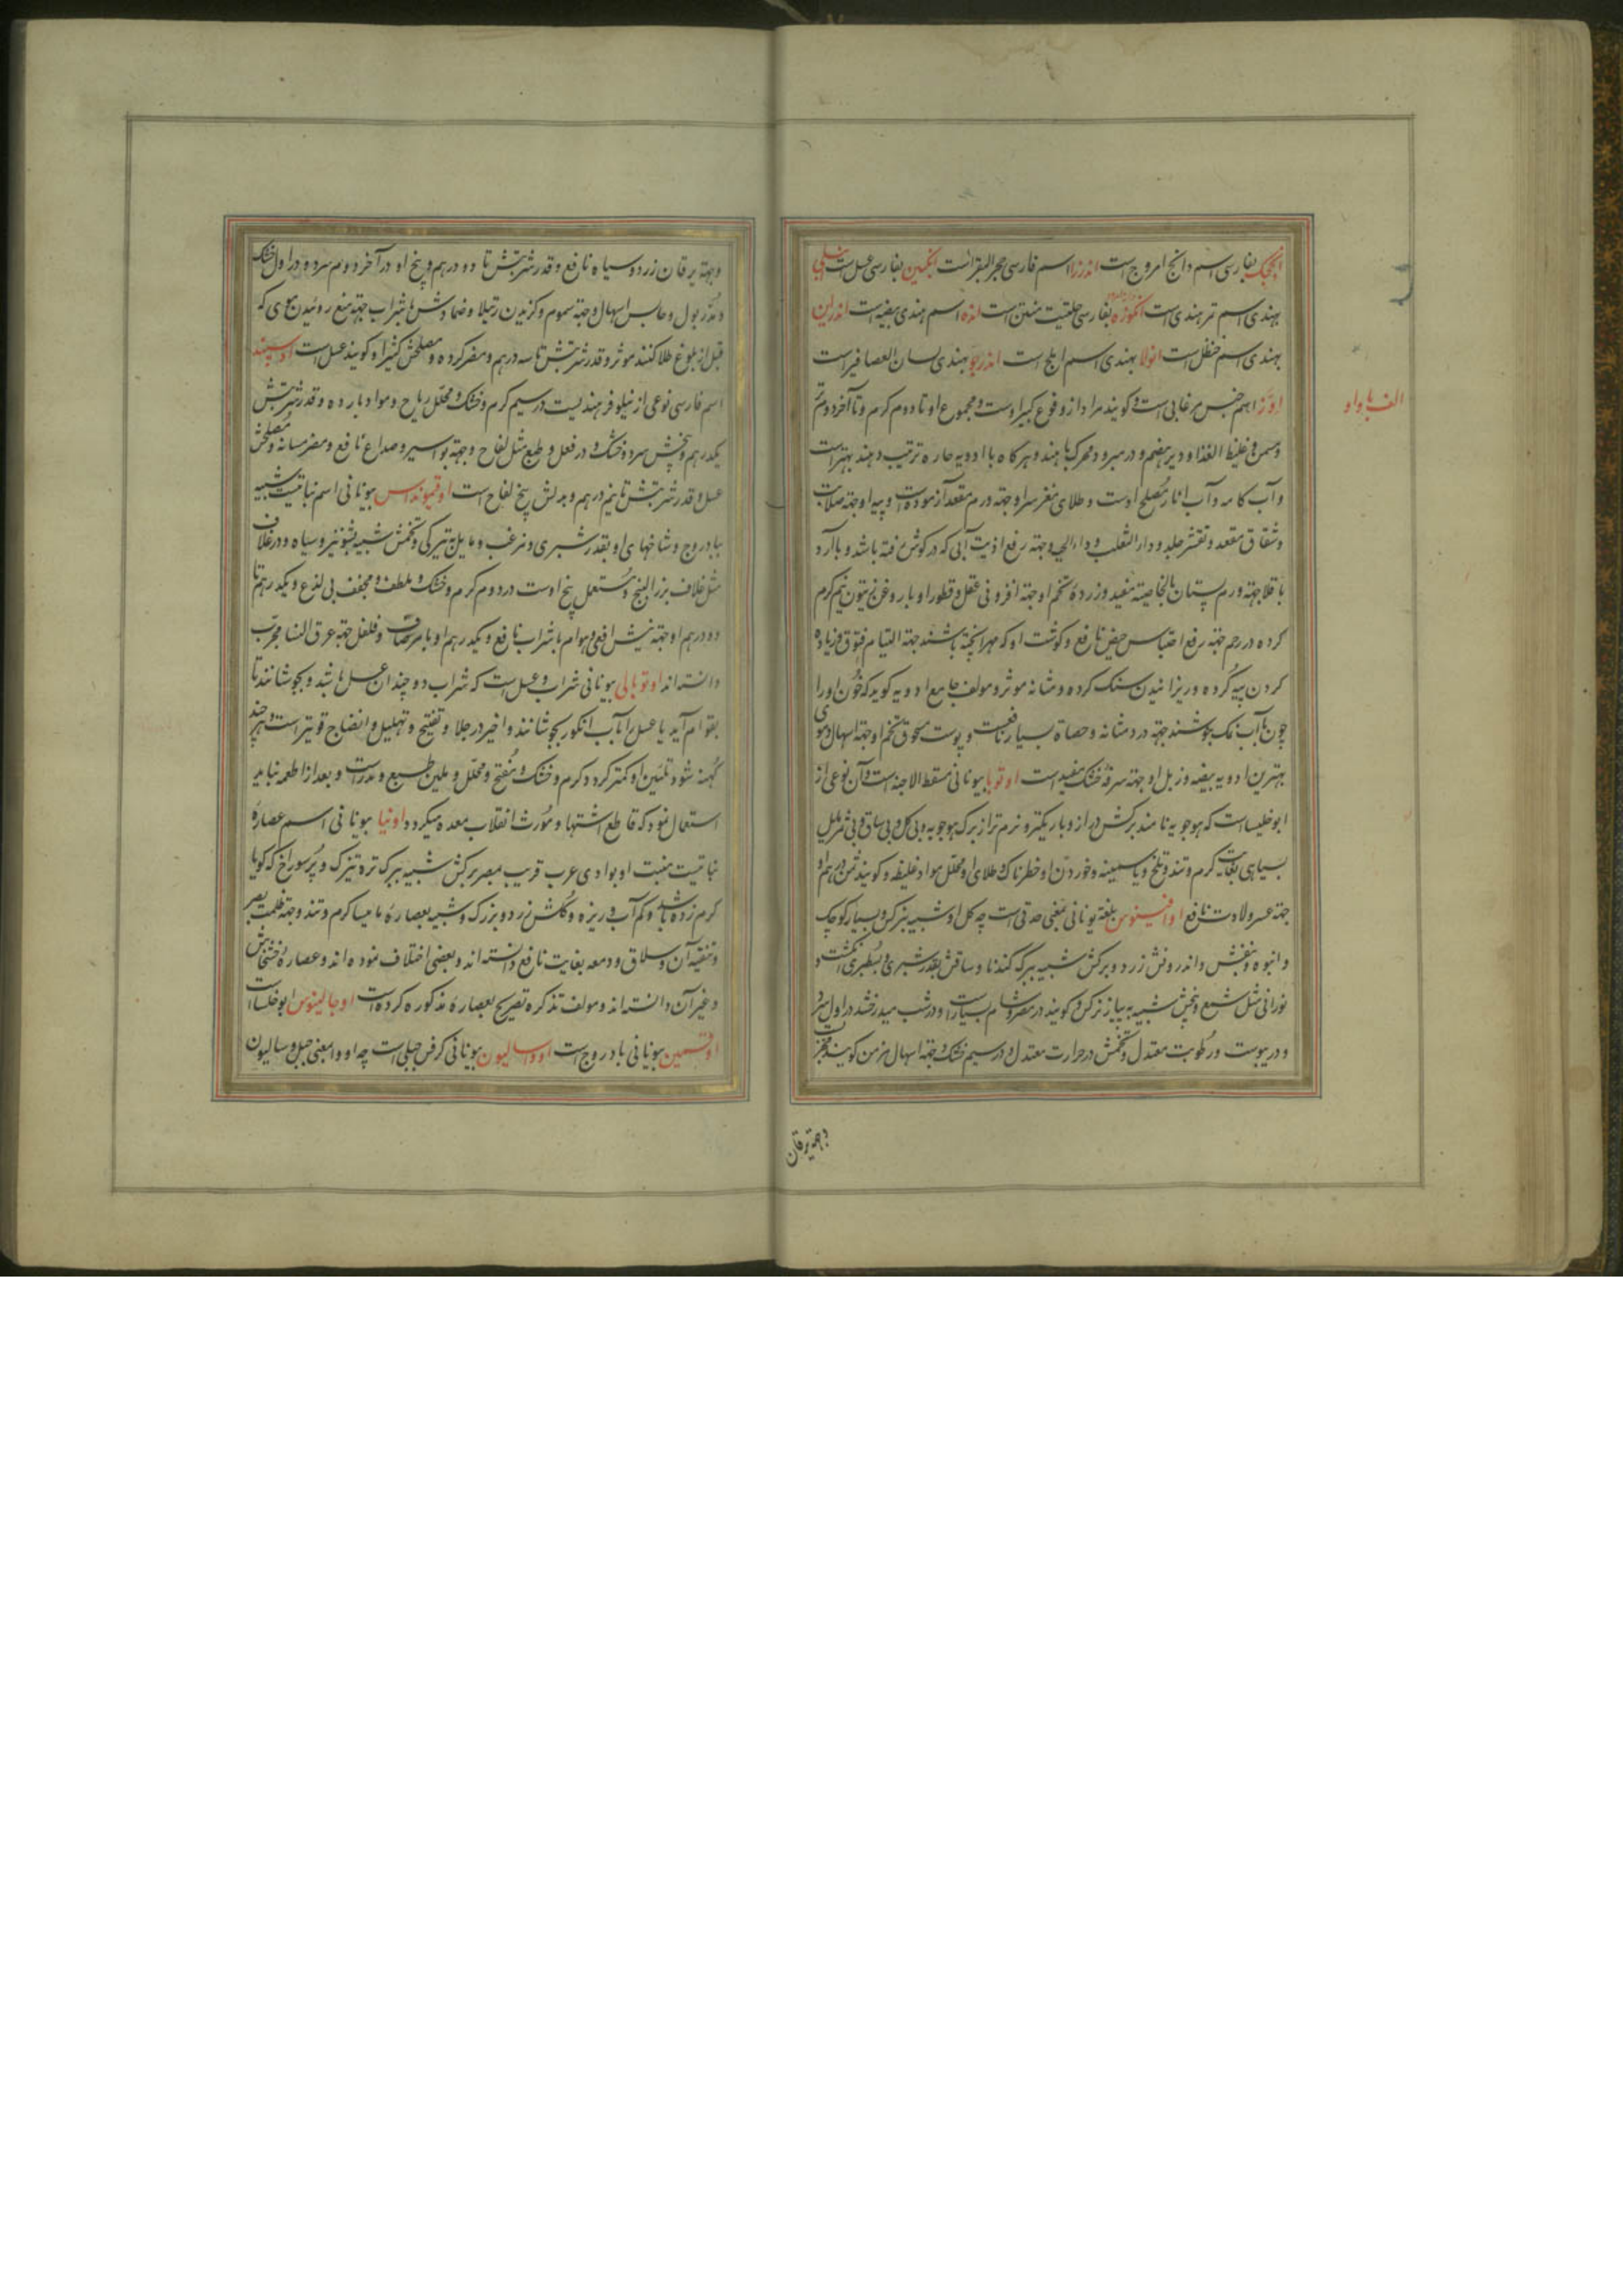 انچکک بفارسی اسم دانج امروج است اندرزا اسم فارسی حجر البقر است انکبین بفارسی عسل است انبلی
بهندی اسم تمر هندی است انکوزه بفارسی حلتیت منتن است انده اسم هندی بیضه است اندراین
بهندی اسم حنظل است انولا بهندی اسم املج است اندرجو بهندی لسان العصافیر است
الف با واو
اوز اسم جنس مرغابی است و کویند مراد از و نوع کبیر اوست و مجموع او تا دوم کرم و تا آخر دوم تر
و مسمن و غلیظ الغذا و دیر هضم و در مبرود محرک باه اند و هر کاه با ادویه حاره ترتیب دهند بهتر است
و آب کامه و آب انار مصلح اوست و طلای مغز سر او جهة ورم مقعد آزموده است و پیه او جهة صلابت
و شقاق مقعد و تقشر جلد و داء الثعلب و داء الحیه و جهة رفع اذیت آبی که در کوش رفته باشد و با آرد
باقلا جهة ورم پستان بالخاصیة مفید و زرده تخم او جهة افزونی عقل و قطور او با روغن زیتون نیم کرم
کرده در رحم جهة رفع احتباس حیض نافع و کوشت او که مهرا پخته باشند جهة التیام فتوق و زیاده
کردن پیه کرده و ریزانیدن سنک کرده و مثانه موثر و مولف جامع ادویه کوید که خون او را
چون با آب نمک بجوشند جهة درد مثانه و حصاة بسیار نافعست و پوست مسحوق تخم او جهة اسهال دموی
بهترین ادویه بیضه و زبل او جهة سرفه خشک مفید است اوتوبا بیونانی مسقط الاجنه است و آن نوعی از
ابوخلسا است که هوجویه نامند برکش دراز و باریکتر و نرم تر از برک هوجویه و بی کل و بی ساق و بی ثمر مایل
بسیاهی بغایت کرم و تند و تلخ و با سمیت و خوردن او خطرناک و طلای او محلل مواد غلیظه و کویند ثمن درهم او
جهة عسر ولادت نافع اوافینوس بلغة یونانی بمعنی حدقی است چه کل او شبیه بنرکس و بسیار کوچک
و انبوه و بنفش و اندرونش زرد و برکش شبیه ببرک کندنا و ساقش بقدر شبری و بسطبری انکشت و
نورانی مثل شمع و بیخش شبیه به پیاز نرکس و کویند در مصر و شام بسیار است و در شب میدرخشد در اول سرد
و در یبوست و رطوبت معتدل و تخمش در حرارت معتدل و در سیم خشک و جهة اسهال مزمن کویند مجرب
وجهة یرقان
وجهة یرقان زرد و سیاه نافع و قدر شربتش تا دو درهم و بیخ او در آخر دوم سرد و در اول خشک
و مدر بول و حابس اسهال و جهة سموم و کزیدن رتیلا و ضمادش با شراب جهة منع روئیدن موی که
قبل از بلوغ طلا کنند موثر و قدر شربتش تا سه درهم و مضر کرده و مصلحش کثیرا و کویند عسل است اوسپند
اسم فارسی نوعی از نیلوفر هندیست در سیم کرم و خشک و محلل ریاح و مواد بارده و قدر شربتش
یکدرهم و بیخش سرد و خشک و در فعل و طبع مثل لفاح و جهة بواسیر و صداع نافع و مضر مسانه و مصلحش
عسل و قدر شربتش تا نیم درهم و بدلش بیخ لفاح است اوقیمونداس بیونانی اسم نباتیست شبیه
ببادروج و شاخهای او بقدر شبری و مزغب و مایل بتیرکی و تخمش شبیه بشونیز و سیاه و در غلاف
مثل غلاف بزر البنج و مستعمل بیخ اوست در دوم کرم و خشک و ملطف و مجفف بی لذع و یکدرهم تا
دو درهم او جهة نیش افعی و هوام با شراب نافع و یکدرهم او با مر صاف و فلفل جهة عرق النسا مجرب
دانسته اند اوتومالی بیونانی شراب و عسل است که شراب دو چندان عسل باشد و بجوشانند تا
بقوام آید یا عسل را با آب انکور بجوشانند و اخیر در جلا و تفتیح و تهلیل و انضاج قویتر است و هر چند
کهنه شود تلئین او کمتر کردد کرم و خشک و مفتح و محلل و ملین طبع و مدر است و بعد از اطعمه نباید
استعمال نمود که قاطع اشتها و مورث انقلاب معده میکردد اونیا بیونانی اسم عصاره
نباتیست منبت او بوادی عرب قریب بمصر برکش شبیه ببرک تره تیزک و پر سوراخ که کویا
کرم زده باشد و کم آب و ریزه و کلش زرد و بزرک و شبیه بعصاره مامیسا کرم و تند و جهة ظلمت بصر
و تنقیه آن و سلاق و دمعه بغایت نافع دانسته اند و بعضی اختلاف نموده اند و عصاره خشخاش
و غیر آن دانسته اند و مولف تذکره تصریح بعصاره مذکوره کرده است اوجالینوس ابوخلسا است
اوقسمین بیونانی بادروج است اوراسالیون بیونانی کرفس جبلی است چه اورا بمعنی جبل و سالیون